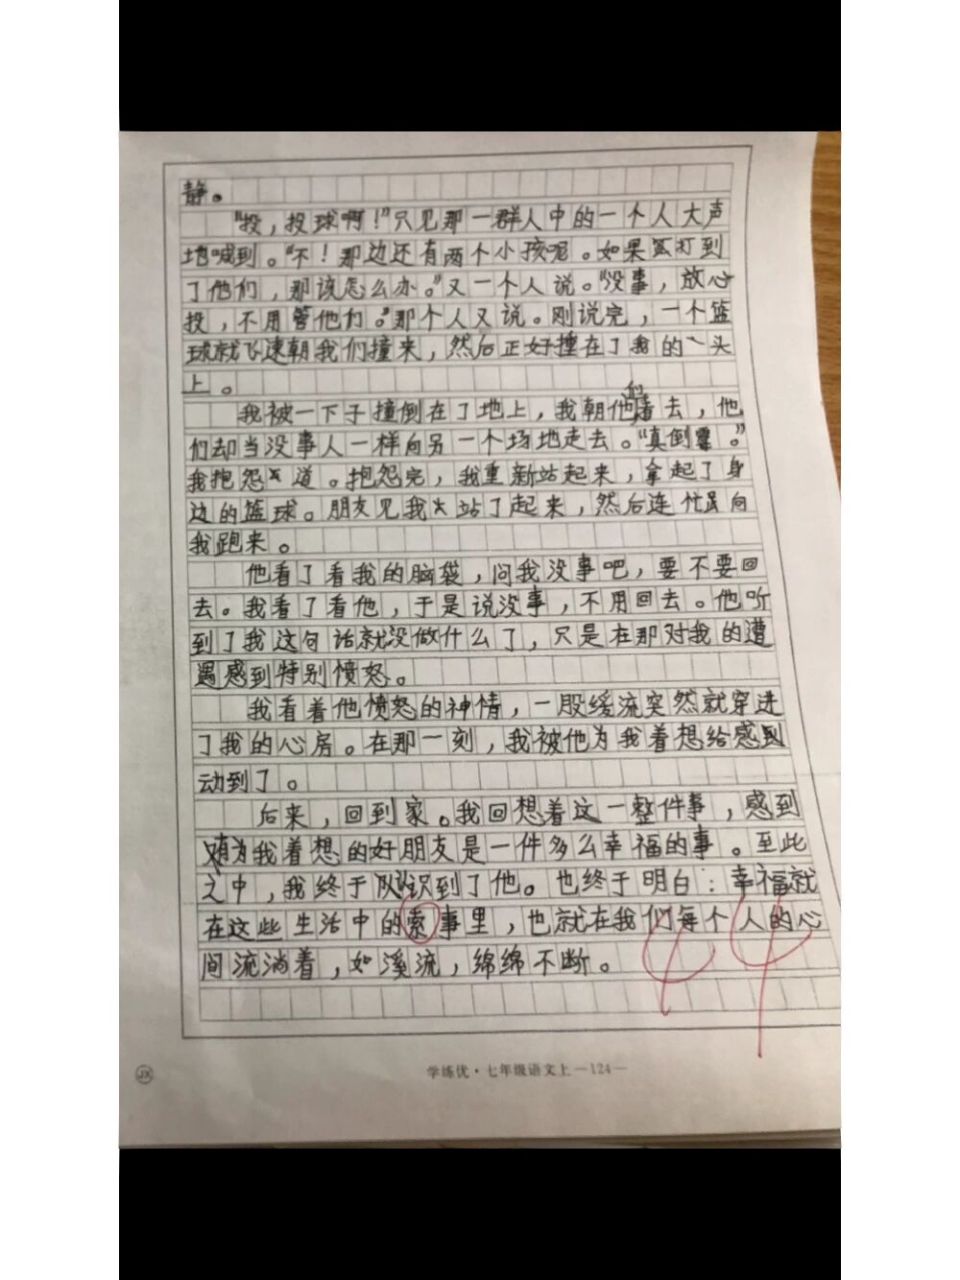 静。
"投，投球啊！"只见那一群人中的一个人大声
地喊到。"不！那边还有两个小孩呢。如果打到
了他们，那该怎么办。"又一个人说。"没事，放心
投，不用管他们。"那个人又说。刚说完，一个篮
球就飞速朝我们撞来，然后正好撞在了我的头
上。
我被一下子撞倒在了地上，我朝他们看去，他
们却当没事人一样向另一个场地走去。"真倒霉。"
我抱怨道。抱怨完，我重新站起来，拿起了身
边的篮球。朋友见我站了起来，然后连忙向
我跑来。
他看了看我的脑袋，问我没事吧，要不要回
去。我看了看他，于是说没事，不用回去。他听
到了我这句话就没做什么了，只是在那对我的遭
遇感到特别愤怒。
我看着他愤怒的神情，一股缓流突然就穿进
了我的心房。在那一刻，我被他为我着想给感
动到了。
后来，回到家。我回想着这一整件事，感到
有为我着想的好朋友是一件多么幸福的事。至此
之中，我终于认识到了他。也终于明白：幸福就
在这些生活中的索事里，也就在我们每个人的心
间流淌着，如溪流，绵绵不断。
44
JX
学练优·七年级语文上—124—